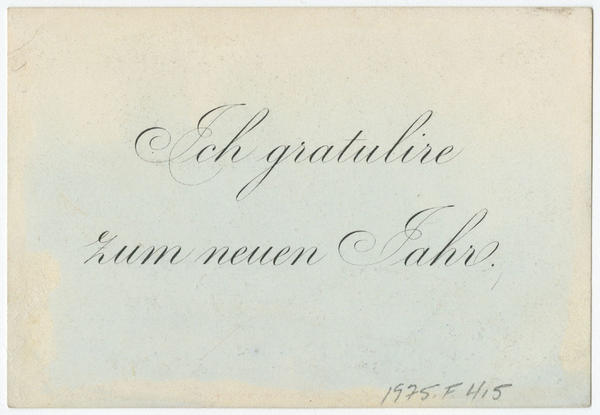 Ich gratulire
zum neuen Jahr.
1975.F.415